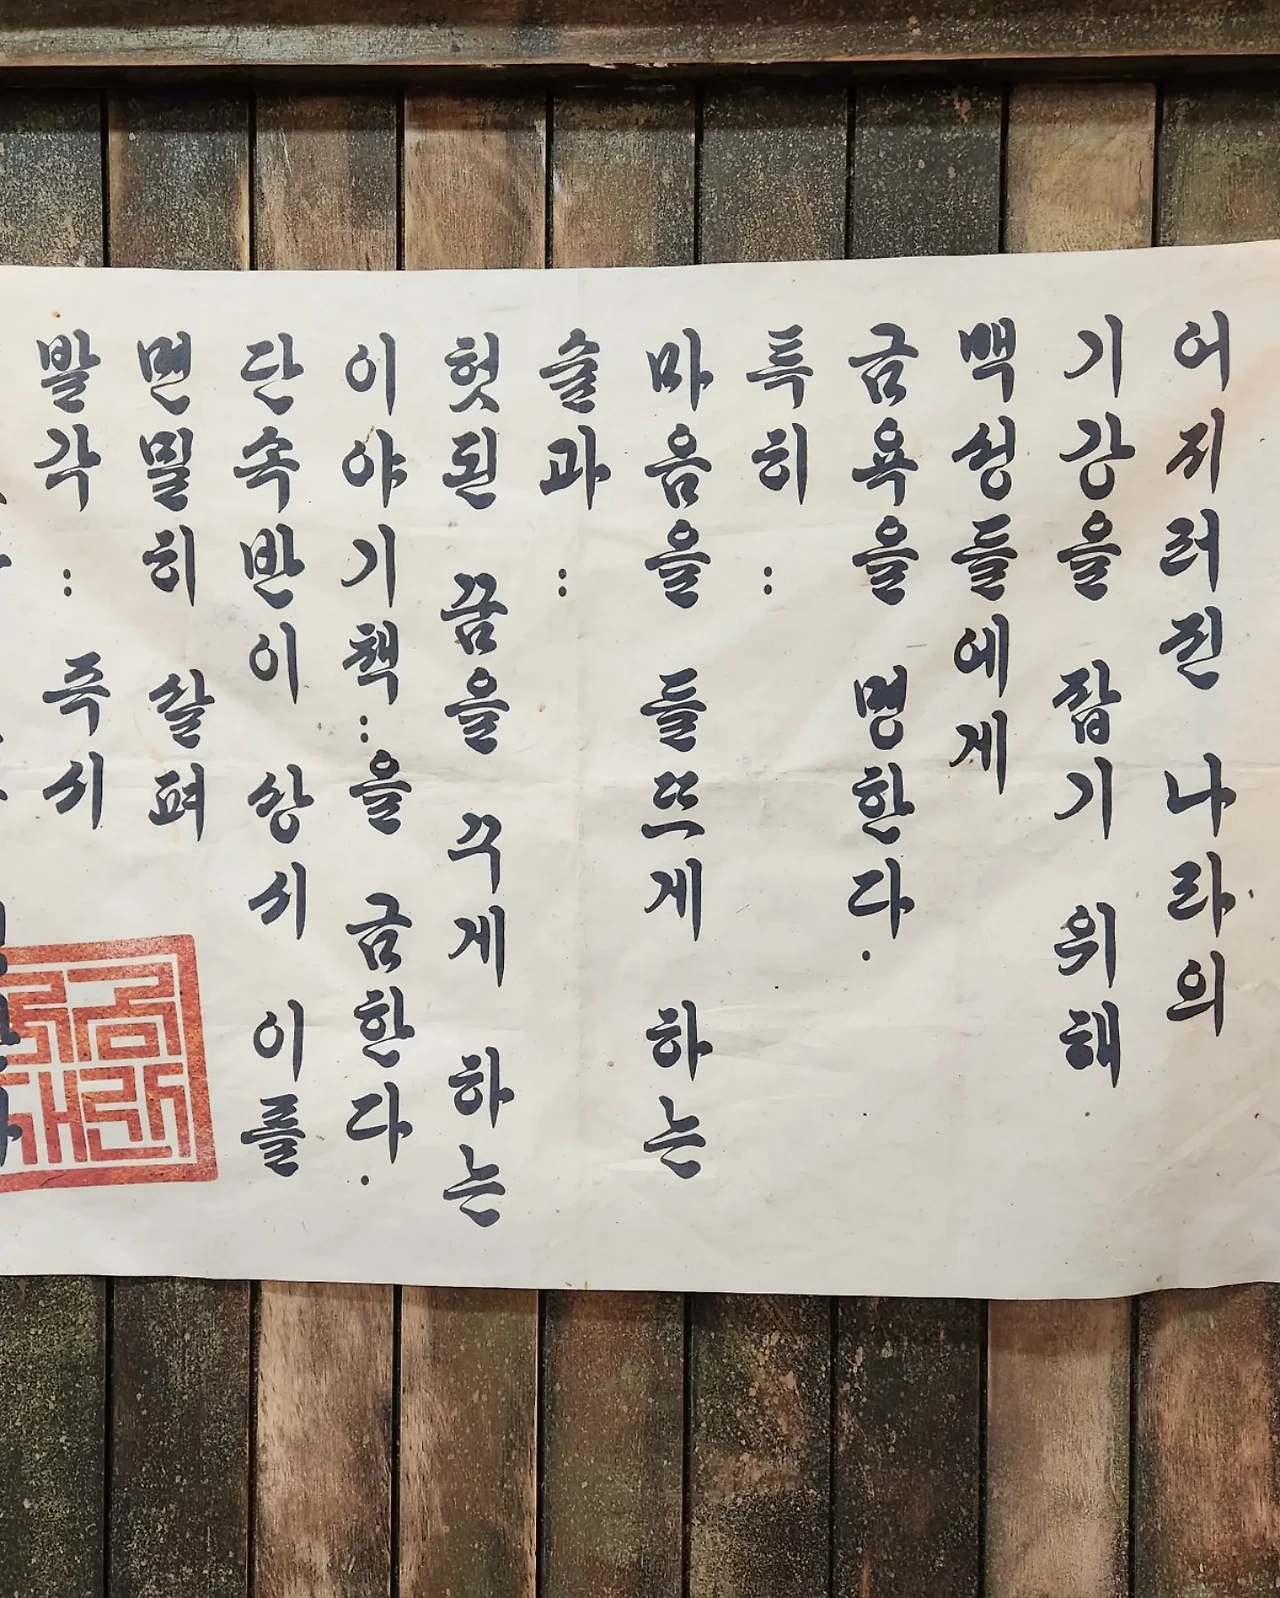 어지러진 나라의
기강을 잡기 위해
백성들에게
금욕을 명한다.
특히:
마음을 들뜨게 하는
술과:
헛된 꿈을 꾸게 하는
이야기책:을 금한다.
단속반이 상시 이를
면밀히 살펴
발각: 즉시